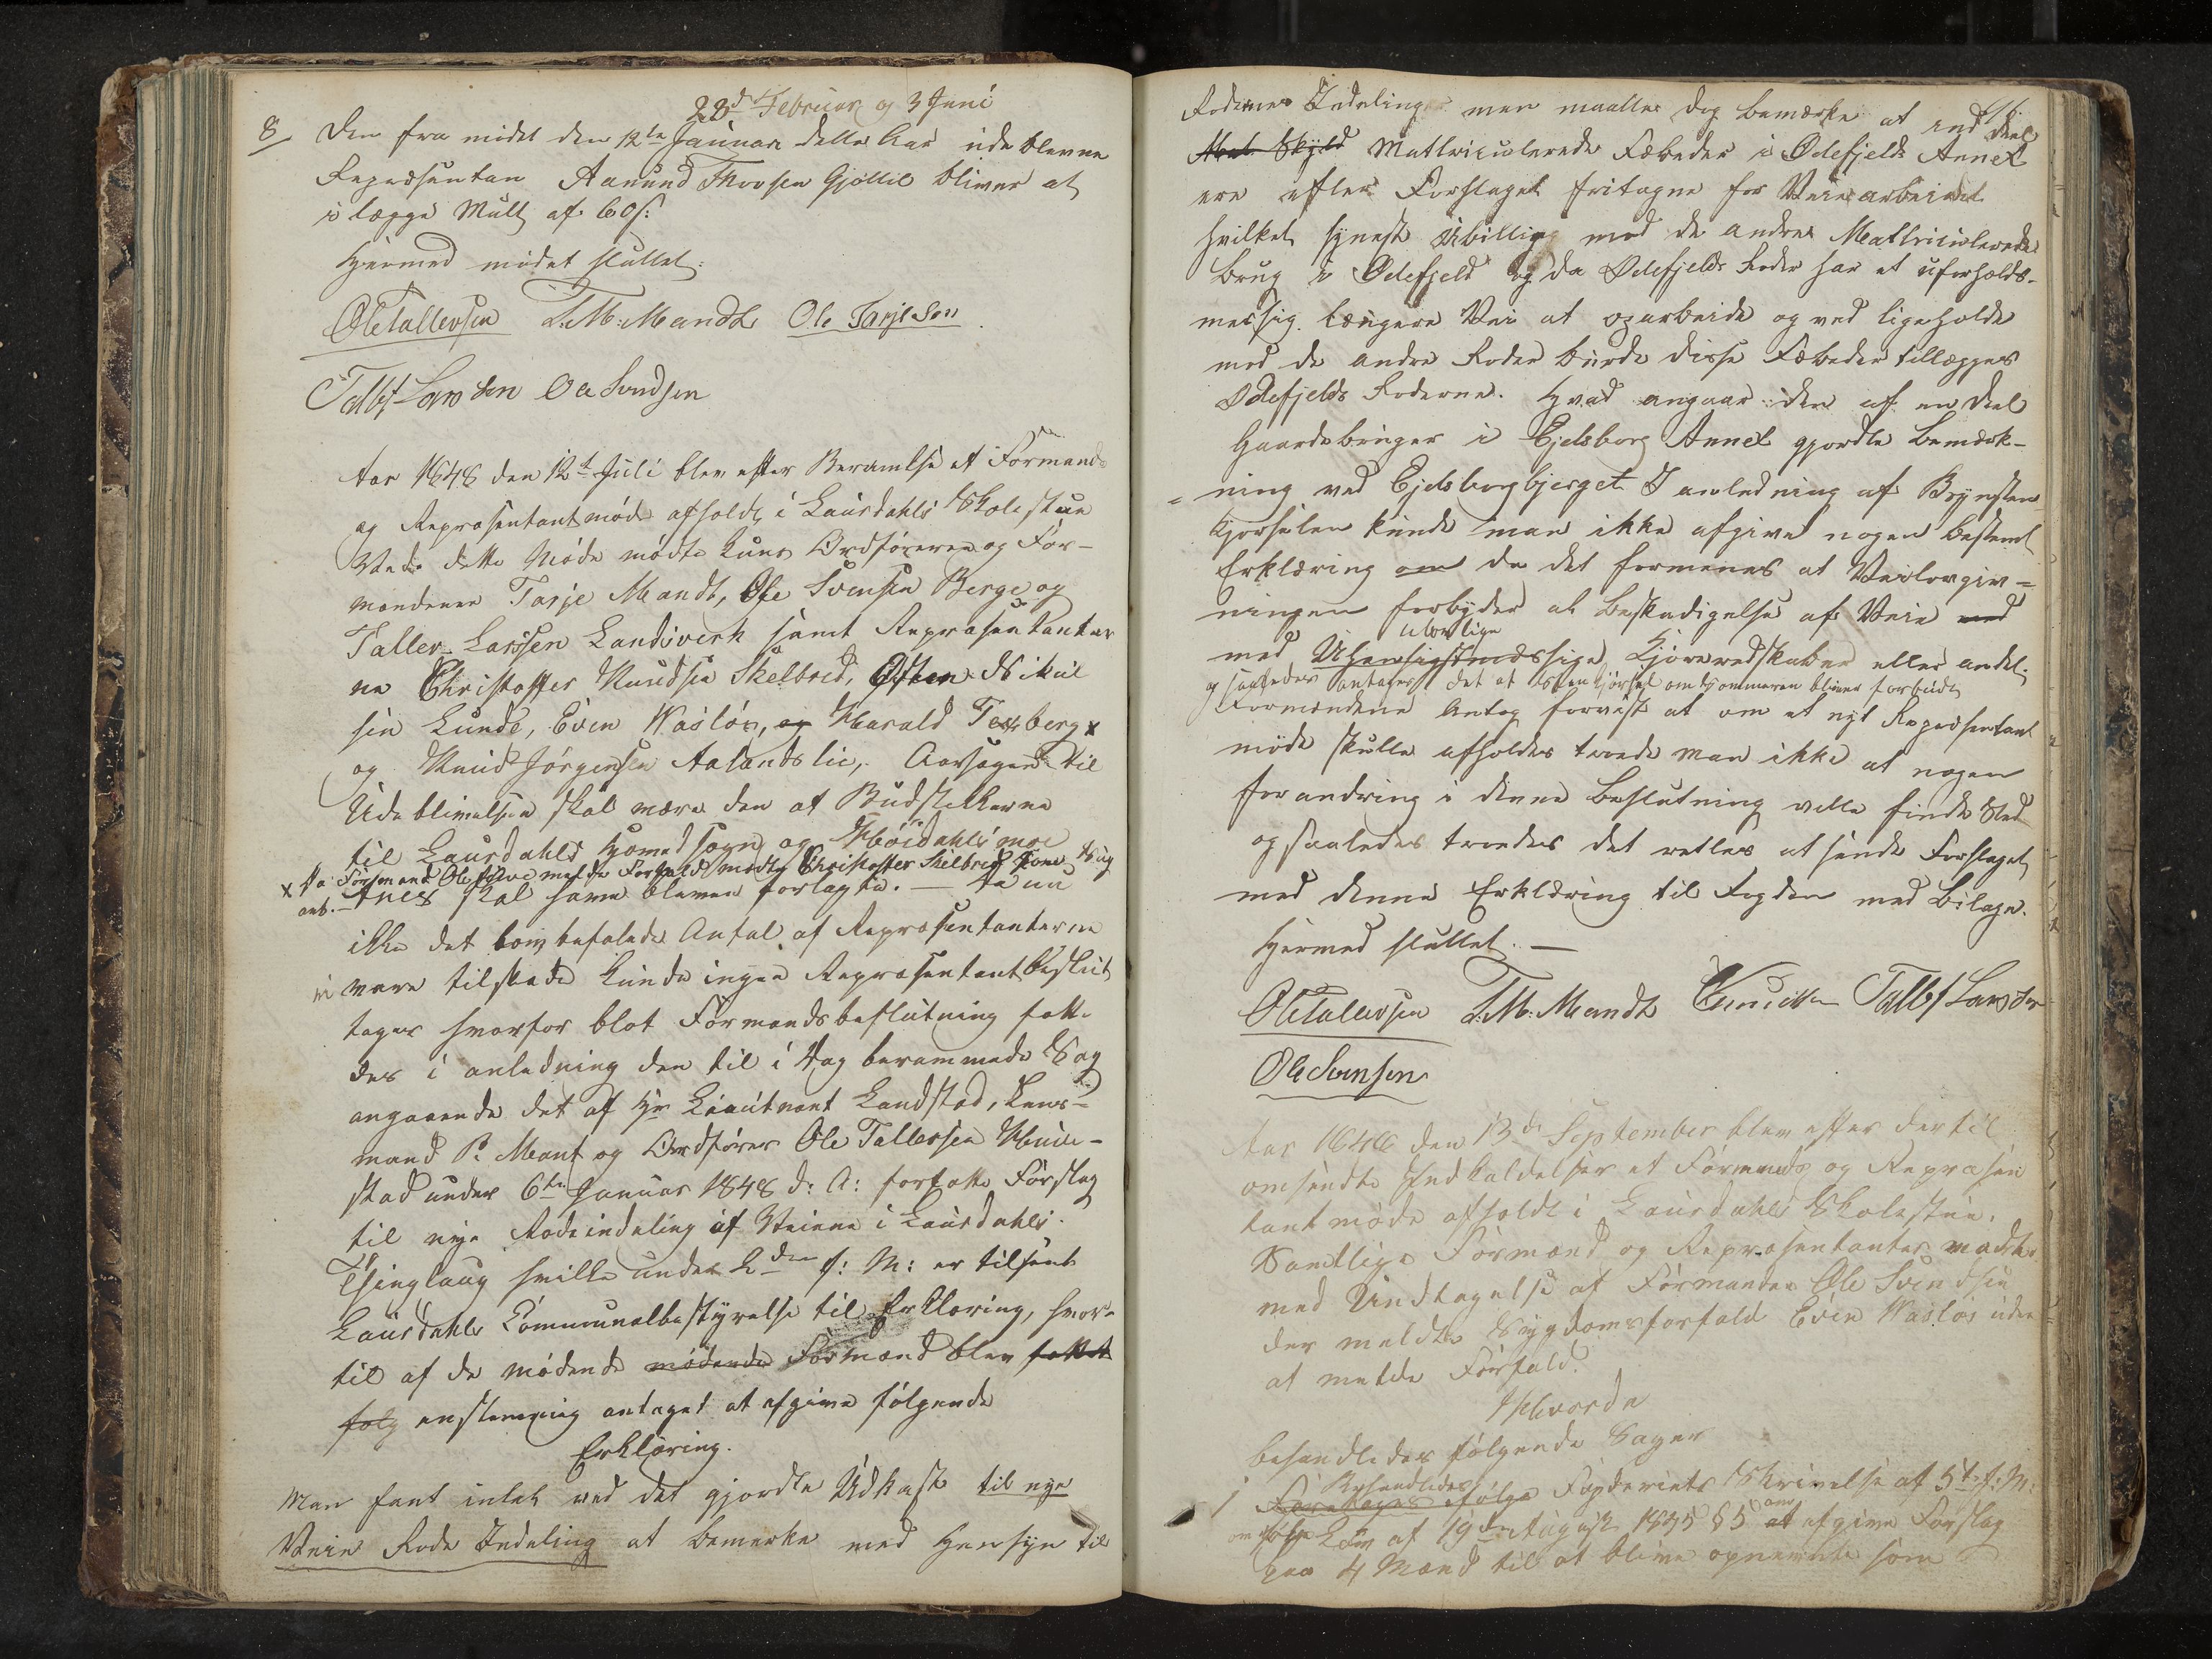 28d Februar og 3 Juni
8 Den fra mødet den 12te Januar dette Aar udeblevne
Repræsentan Aanund Thorsen Gjøttil bliver at
ilægge Mult af 60 s:
Hermed mødet sluttet:
OleTallevsen T.M:Mandt Ole Tarjesen
Tallef Larsen Ole Svendsen
Aar 1848 den 12te Juli blev efter Berammelse et Formands
og Repræsentantmøde afholdt i Laurdahls Skolestue
Ved dette Møde mødte kuns Ordføreren og For-
mændene Tarje Mandt, Ole Svensen Berge og
Tallev Larssen Landsverk samt Repræsentanter
ne Christoffer Knudsen Skelbred, Østen Nikul
sen Lunde, Even Wasløs, og Harald Torberg x
og Knud Jørgensen Aalandslie, Aarsagen til
Udeblivelsen skal være den at Budstikkerne
til Laurdahls Hovedsogn og Høidahlsmoe
x Da Formand Ole melde Forfald mødte Christoffer Skelbred som Sup
ant. Anex skal have bleven forlagte. — Da nu
ikke det lovbefalede Antal af Repræsentanterne
vare tilstæde kunde ingen Repræsentantbeslut
tages hvorfor blot Formandsbeslutning fatte
des i anledning den til i Dag berammede Sag
angaaende det af Hr Lieutnant Landstad, Lens-
mand P. Mant og Ordfører Ole Tallevsen Huve-
stad under 6te Januar 1848 d: A: forfatte Forslag
til nye Rodeindeling af Veiene i Laurdahls
Thinglaug hvilke under 2den f: M: er tilsent
Laurdahls Communalbestyrelse til Erklæring, hvor-
til af de mødende mødende Formænd blev fattet
følg enstemmig antaget at afgive følgende
Erklæring.
Man fant intet ved det gjordte Udkast til nye
Veie Rode Indeling at bemerke med Hensyn til
Rodernes Indeling men maatte dog bemærke at end Deel
Mat. Skyld Mattriculerede Fæbeder i Ødefjelds Annex
ere efter Forslaget fritagne for Veiearbeidet
hvilket synest Ubillig mod de andre Mattriculerede
brug i Ødefjeld og da Ødefjelds Roder har et uforholds-
messig længere Vei at oparbeide og ved ligeholde
mod de andre Roder burde disse Fæbeder tillægges
Ødefjelds Roderne. Hvad angaar den af en Deel
Gaardebruger i Ejdsborg Annex gjordte bemærk-
ning ved Ejdsborgbjerget I anledning af Brynsten
kjørselen kunde man ikke afgive nogen bestemt
Erklæring om da det formenes at Veilovgiv-
ningen forbyder at beskadigelse af Veie ved
ulovlige
med Uhensigtmæssige Kjøreredskaber eller andet.
og saaledes antages det at stenkjørsel om sommeren bliver forbudt
Formændene Antog forvist at om et nyt Repræsentant
møde skulle afholdes troede man ikke at nogen
forandring i denne Beslutning ville finde Sted
og saaledes troedes det rettest at sende Forslaget
med denne Erklæring til Fogden med Bilage.
Hermed sluttet. —
OleTallevsen T.M:Mandt Tallef Larsen
Ole Svensen
Aar 1848 den 13de September blev efter dertil
omsendte Indkaldelser et Formands og Repræsen
tantmøde afholdt i Laurdahls Skolestue.
Samtlige Formænd og Repræsentanter mødte
med Undtagelse af Formanden Ole Svendsen
der meldte Sygdomsforfald Even Wasløs uden
at melde Forfald.
Hvorda
behandledes følgende Sager
Behandledes
1 Foretages ifølge Fogderiets Skrivelse af 5te f: M:
om ifølge Lov af 19de August 1845 § 5 at afgive Forslag
paa 4 Mænd til at blive opnævnte som